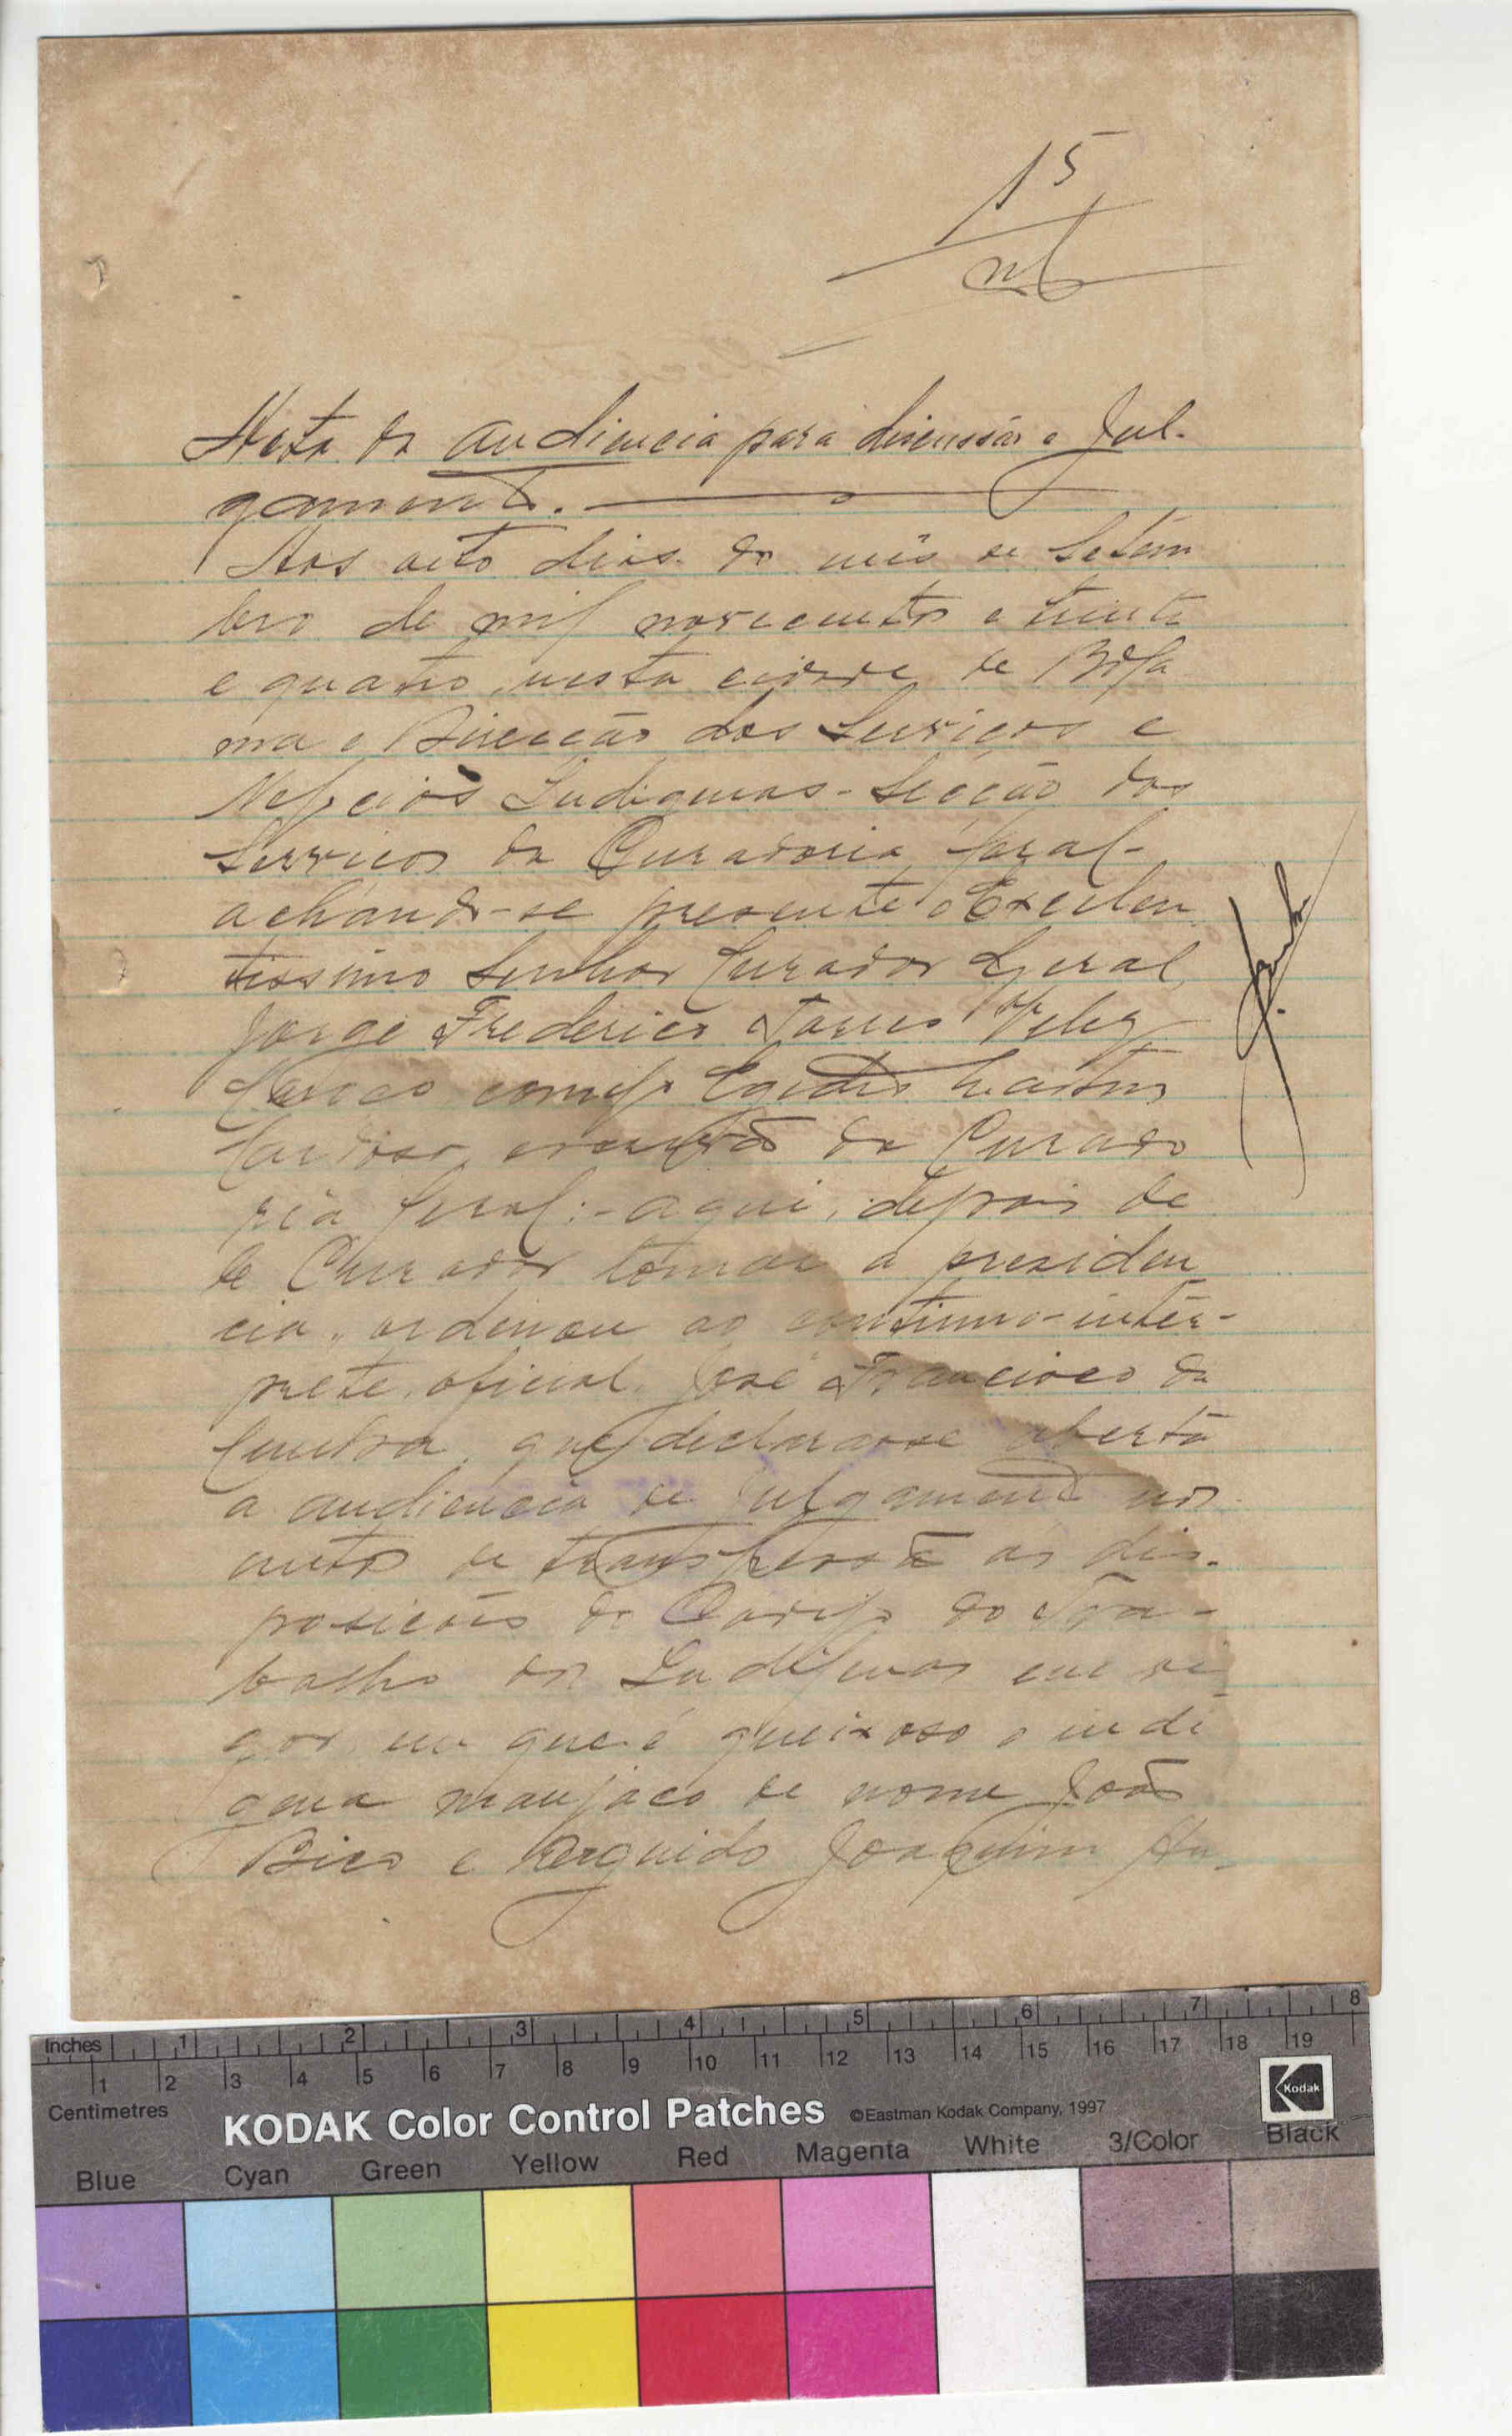 15
Acta da audiencia para discussão e Jul-
gamento.
Aos oito dias do mês de Setem
bro de mil novecentos e trinta
e quatro, nesta cidade de Bola
ma e Direcção dos Serviços e
Negocios Indigenas - Secção dos
Serviços da Curadoria Geral -
achando-se presente o Excelen
tissimo Senhor Curador Geral,
Jorge Frederico Torres Velez
Caroço, comigo
Cardoso, escrivão da Curado
ria Geral: - aqui, depois de
le Curador tomar a presiden
cia, ordenou ao continuo-intér-
prete, oficial, José Francisco da
que declarasse aberta
a audiencia de julgamento nos
autos de transgressão as dis-
posicões do Codigo do Tra-
balho dos Indigenas em vi
gor em que é queixoso o indi
gena manjaco de nome João
Bico e Arguido Joaquim An-
Inches 1 2 3 4 5 6 7 8
1 2 3 4 5 6 7 8 9 10 11 12 13 14 15 16 17 18 19
Centimetres
KODAK Color Control Patches ©Eastman Kodak Company, 1997
Kodak
Blue Cyan Green Yellow Red Magenta White 3/Color Black